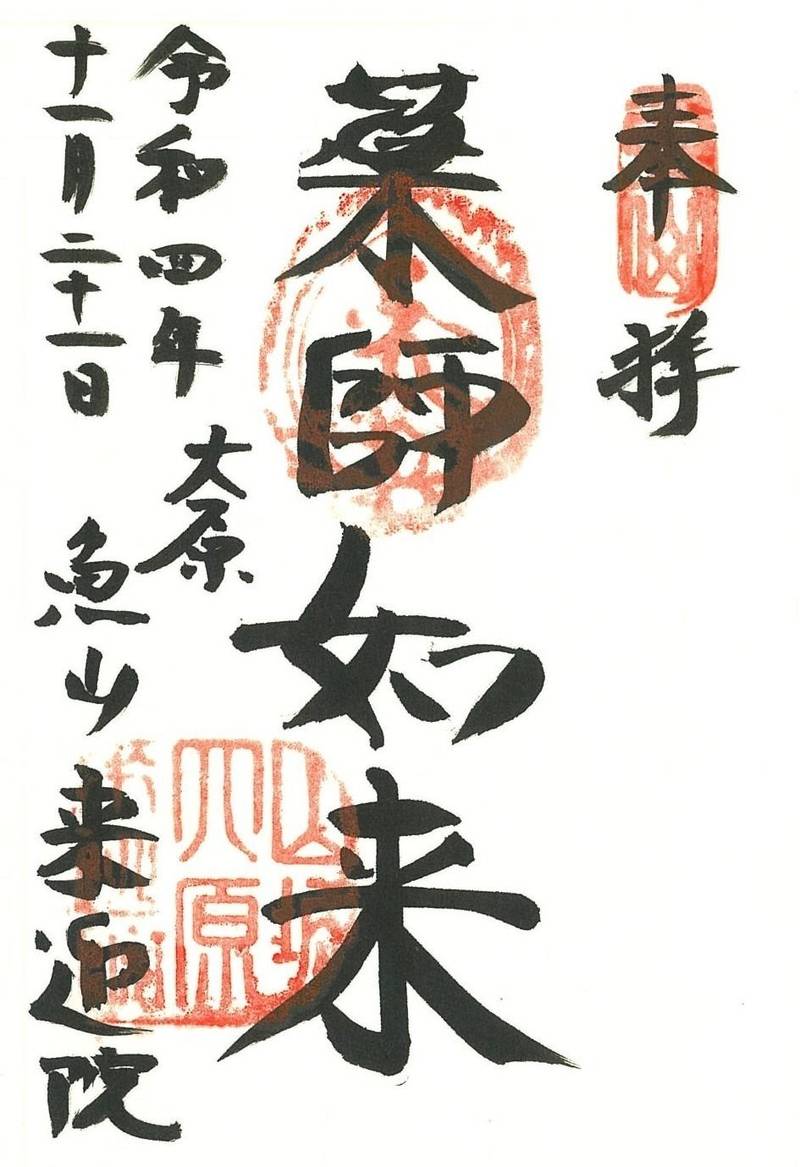 奉拝
薬師如来
令和四年
十一月二十一日
大原
魚山
来迎院
山城
大原